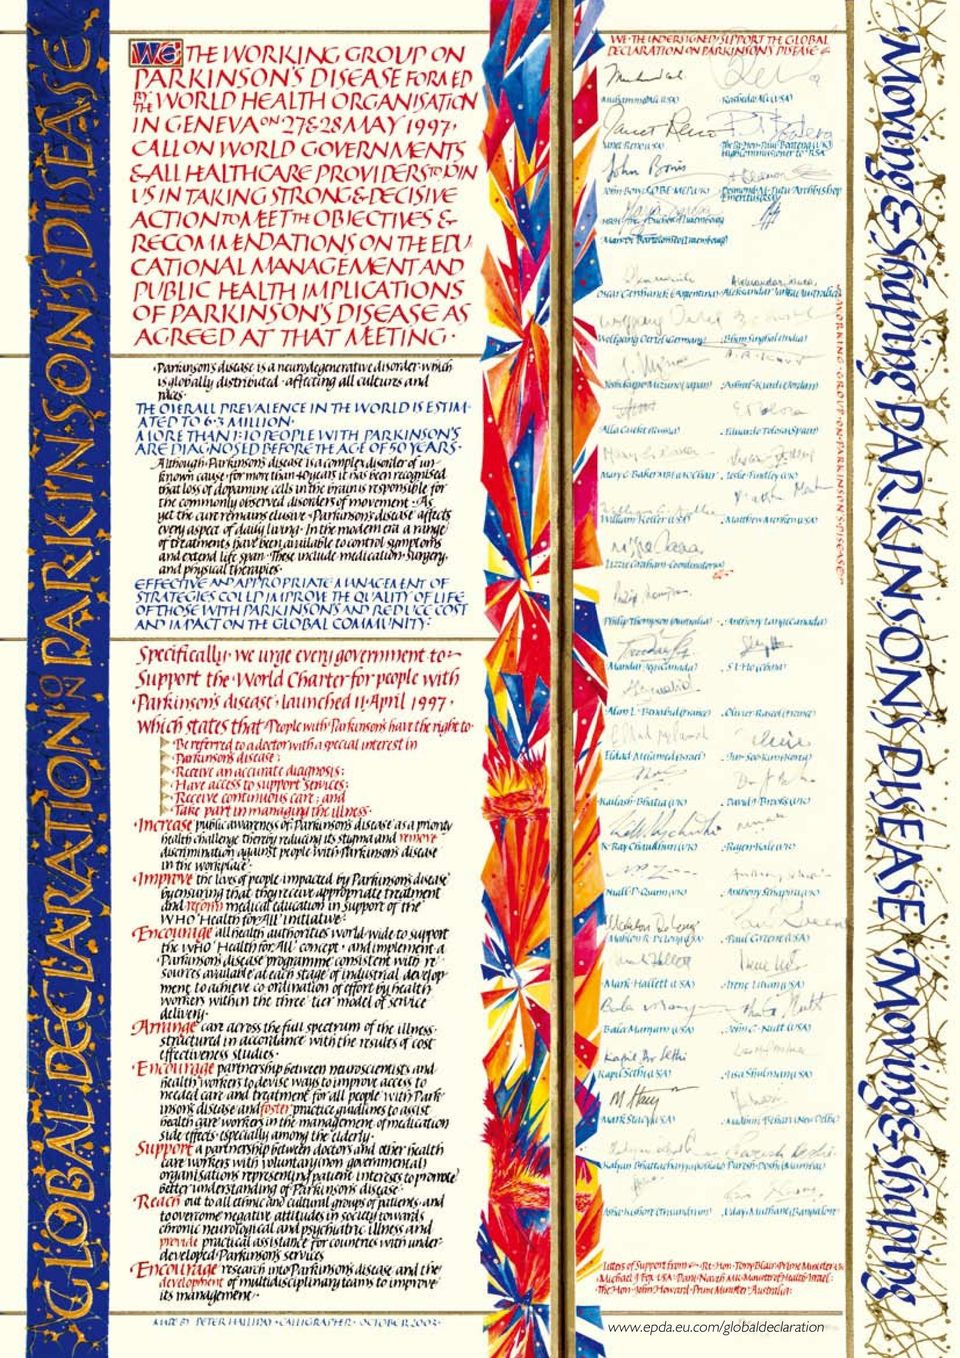 GLOBAL DECLARATION ON PARKINSON'S DISEASE
WE THE WORKING GROUP ON
PARKINSON'S DISEASE FORMED
BY THE WORLD HEALTH ORGANISATION
IN GENEVA ON 27 & 28 MAY 1997,
CALL ON WORLD GOVERNMENTS
& ALL HEALTHCARE PROVIDERS TO JOIN
US IN TAKING STRONG & DECISIVE
ACTION TO MEET THE OBJECTIVES &
RECOMMENDATIONS ON THE EDU
CATIONAL MANAGEMENT AND
PUBLIC HEALTH IMPLICATIONS
OF PARKINSON'S DISEASE AS
AGREED AT THAT MEETING.
Parkinson's disease is a neurodegenerative disorder which
is globally distributed affecting all cultures and
races.
THE OVERALL PREVALENCE IN THE WORLD IS ESTIM
ATED TO 6.3 MILLION.
MORE THAN 1:10 PEOPLE WITH PARKINSON'S
ARE DIAGNOSED BEFORE THE AGE OF 50 YEARS.
Although Parkinson's disease is a complex disorder of un
known cause for more than 40 years it has been recognised
that loss of dopamine cells in the brain is responsible for
the commonly observed disorders of movement. As
yet the cure remains elusive. Parkinson's disease affects
every aspect of daily living. In the modern era a range
of treatments have been available to control symptoms
and extend life span. These include medication, surgery,
and physical therapies.
EFFECTIVE AND APPROPRIATE MANAGEMENT OF
STRATEGIES COULD IMPROVE THE QUALITY OF LIFE
OF THOSE WITH PARKINSON'S AND REDUCE COST
AND IMPACT ON THE GLOBAL COMMUNITY:
Specifically, we urge every government to
Support the World Charter for people with
Parkinson's disease, launched 11 April 1997,
which states that People with Parkinson's have the right to:
Be referred to a doctor with a special interest in
Parkinson's disease;
Receive an accurate diagnosis;
Have access to support services;
Receive continuous care; and
Take part in managing the illness.
Increase public awareness of Parkinson's disease as a priority
health challenge thereby reducing its stigma and remove
discrimination against people with Parkinson's disease
in the workplace.
Improve the lives of people impacted by Parkinson's disease
by ensuring that they receive appropriate treatment
and reform medical education in support of the
WHO 'Health for All' initiative.
Encourage all health authorities world-wide to support
the WHO 'Health for All' concept and implement a
Parkinson's disease programme consistent with re
sources available at each stage of industrial develop
ment to achieve co ordination of effort by health
workers within the three tier model of service
delivery.
Arrange care across the full spectrum of the illness
structured in accordance with the results of cost
effectiveness studies.
Encourage partnership between neuroscientists and
health workers to devise ways to improve access to
needed care and treatment for all people with Park
inson's disease and foster practice guidlines to assist
health care workers in the management of medication
side effets especially among the elderly.
Support a partnership between doctors and other health
care workers with voluntary (non governmental)
organisations representing patient interests to promote
better understanding of Parkinson's disease.
Reach out to all ethnic and cultural groups of patients and
to overcome negative attitudes in society towards
chronic neurological and psychiatric illness and
provide practical assistance for countries with under
developed Parkinson's services
Encourage research into Parkinson's disease and the
development of multidisciplinary teams to improve
its management.
MADE BY PETER HALLIDAY CALLIGRAPHER OCTOBER 2003
WE THE UNDERSIGNED SUPPORT THE GLOBAL
DECLARATION ON PARKINSON'S DISEASE
Muhammad Ali (USA) Rasheda Ali (USA)
Janet Reno
Janet Reno (USA) The Rt Hon Paul Boateng (UK)
High Commissioner to RSA
John Bowis
John Bowis OBE MEP (UK) Desmond M. Tutu Archbishop
Emeritus (RSA)
HRH The Duchess of Luxembourg
Marc Di Bartolomeo (Luxembourg)
Oscar Gershanik (Argentina) Aleksandar (Australia)
WORKING GROUP ON PARKINSON'S DISEASE
Wolfgang Oertel (Germany) Bhim Singhal (India)
Yoshikuni Mizuno (Japan) Ashraf Kurdi (Jordan)
Alla Guekt (Russia) Eduardo Tolosa (Spain)
Mary G Baker MBE (UK) Chair Leslie Findley (UK)
William Koller (USA) Matthew Menken (USA)
Lizzie Graham Coordinator (UK)
Philip Thompson (Australia) Anthony Lang (Canada)
Mandar Jog (Canada) S T Ho (China)
Alim L Benabid (France) Olivier Rascol (France)
Eldad Melamed (Israel) Jin-Soo Kim (Korea)
Kailash Bhatia (UK) David J Brooks (UK)
K Ray Chaudhuri (UK) Rajen Kale (UK)
Niall P Quinn (UK) Anthony Schapira (UK)
Mahlon R DeLong (USA) Paul Greene (USA)
Mark Hallett (USA) Irene Litvan (USA)
Bala Manyam (USA) John G. Nutt (USA)
Kapil Sethi (USA) Lisa Shulman (USA)
Mark Stacy (USA) Madhuri Behari (New Delhi)
Kalyan Bhattacharyya (Kolkata) Paresh Doshi (Mumbai)
Asha Kishore (Trivandrum) Uday Muthane (Bangalore)
Letters of Support from Rt. Hon. Tony Blair Prime Minister UK
Michael J Fox USA Dani Naveh MK Minister of Health Israel
The Hon John Howard Prime Minister Australia
www.epda.eu.com/globaldeclaration
Moving & Shaping PARKINSON'S DISEASE Moving & Shaping